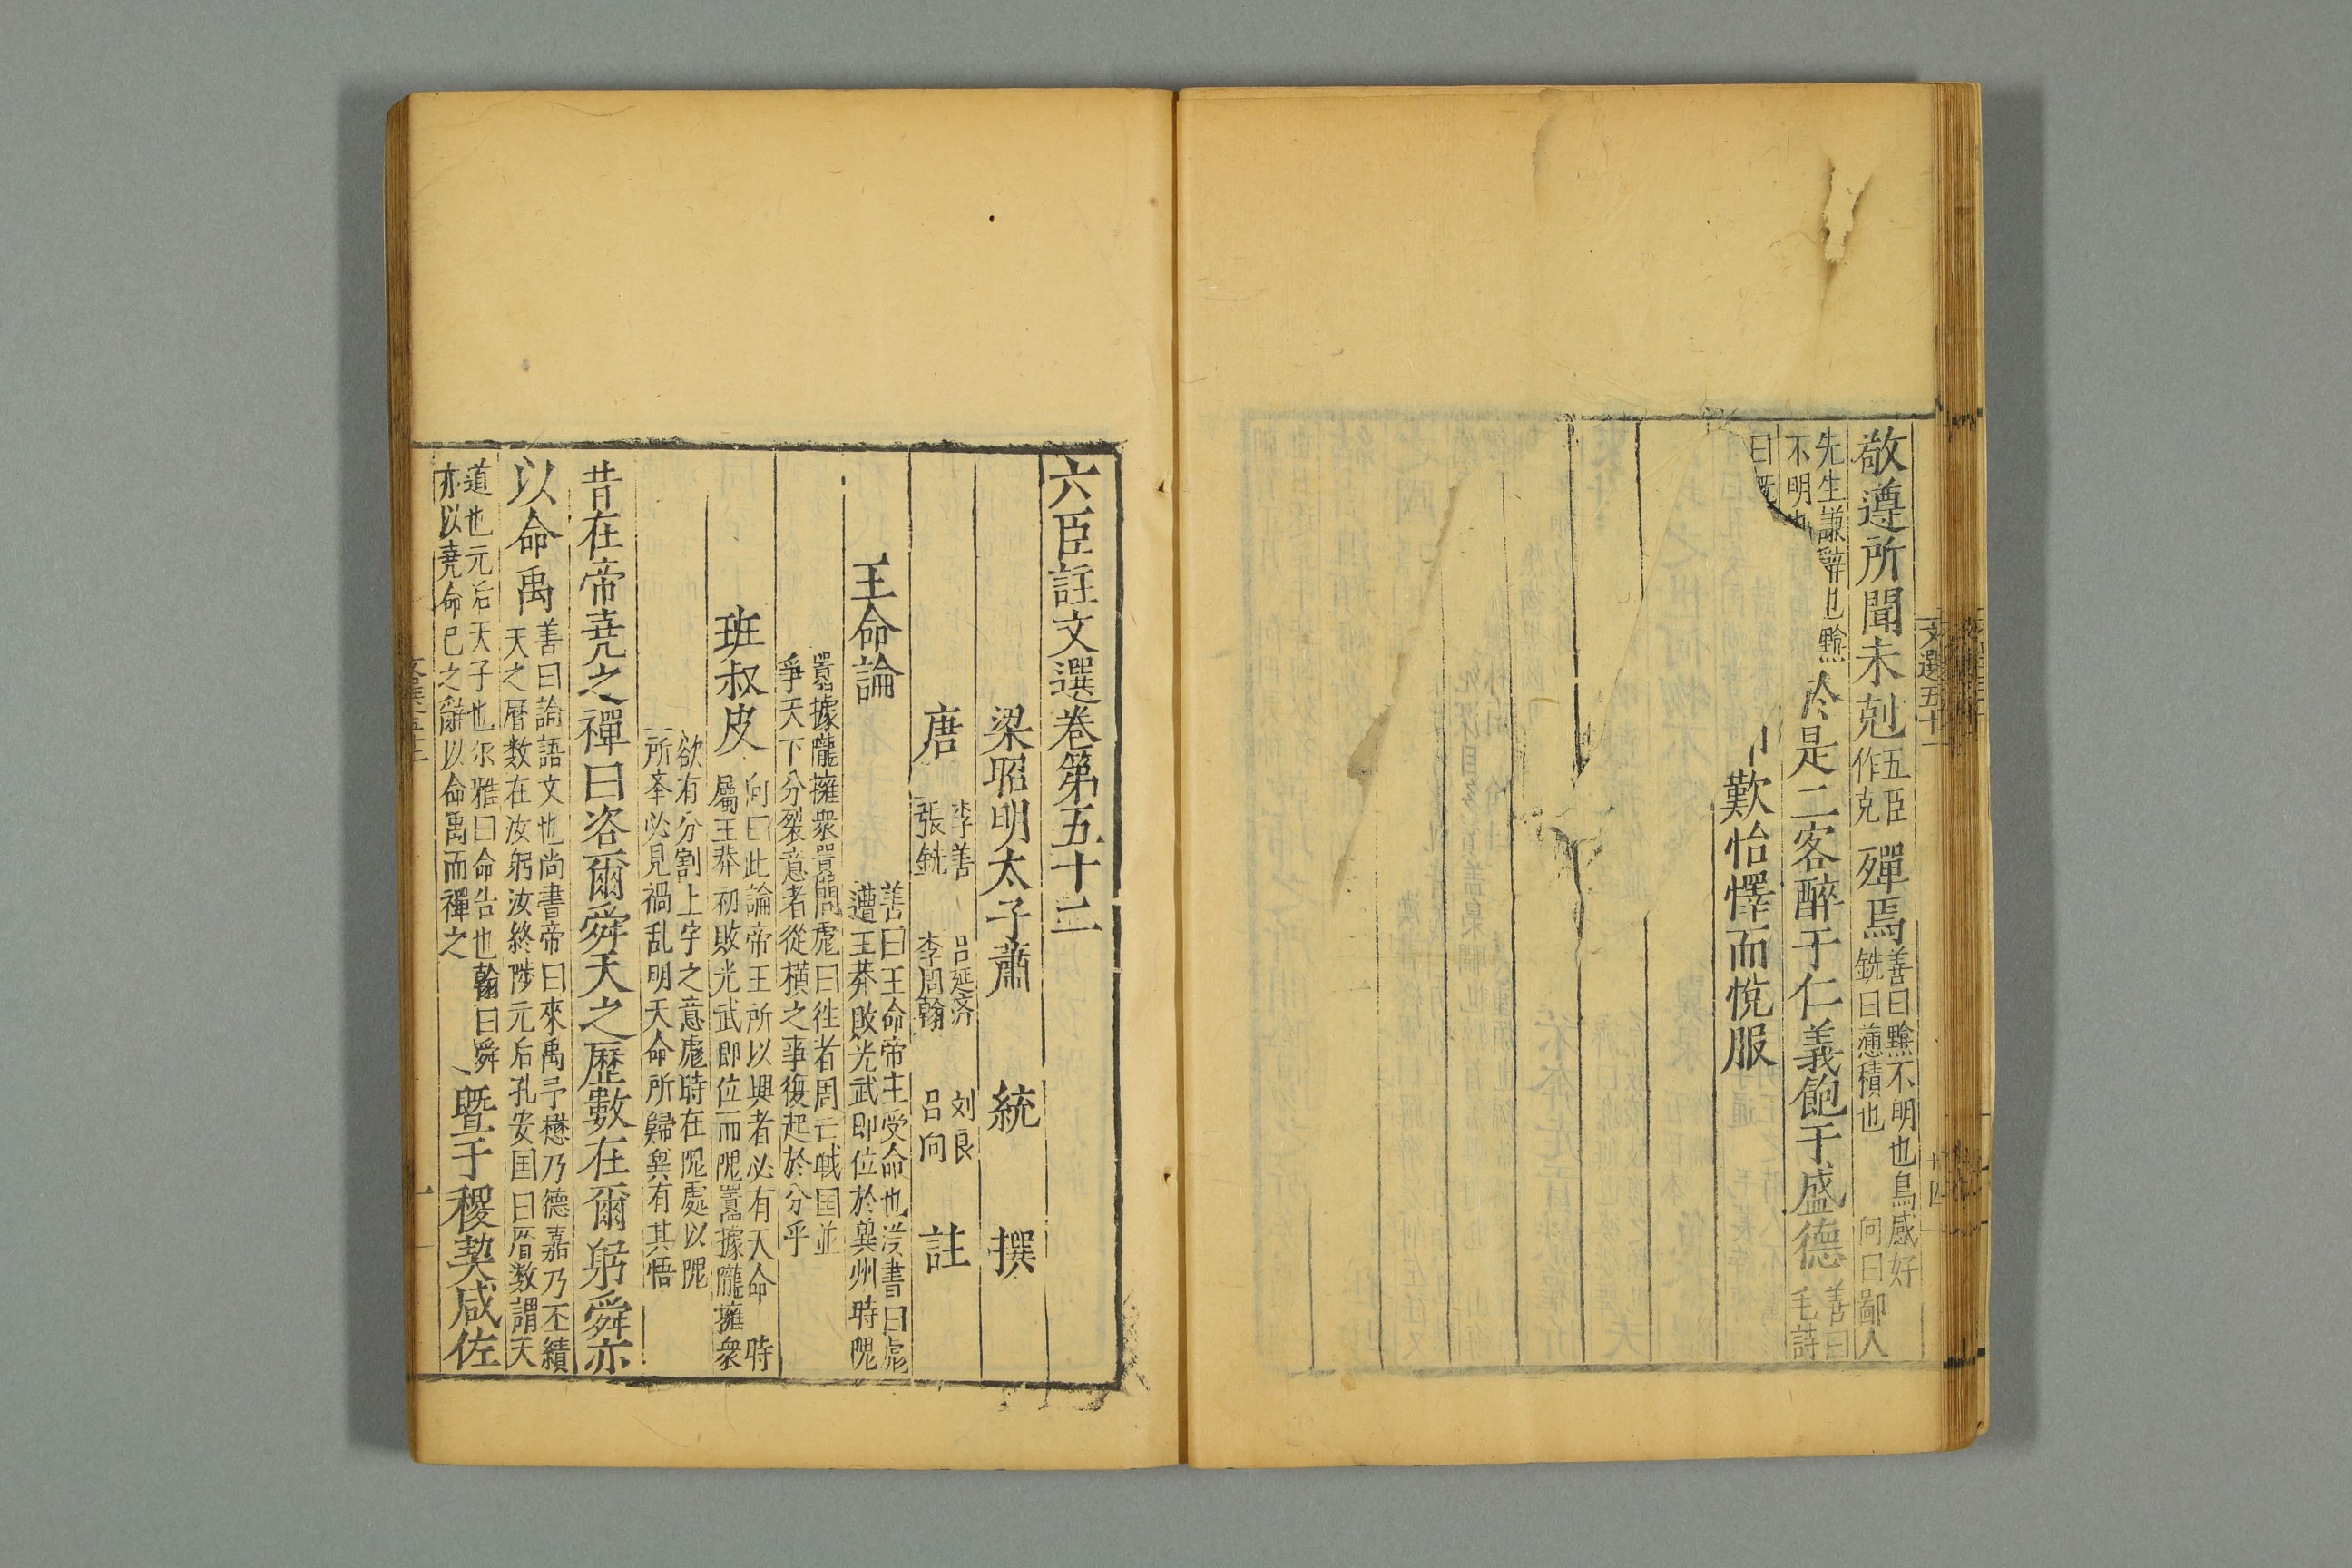 敬遵所聞未剋五臣作克殫焉善曰黵不明也鳥感好
銑曰薀積也向曰鄙人
先生謙辭也黵
不明也
於是二客醉于仁義飽于盛德善曰毛詩
曰旣
歎怡懌而悅服
文選五十一
十四
六臣註文選卷第五十二
梁昭明太子蕭統撰
唐
李善 呂延济 刘良
張銑 李周翰 呂向
註
王命論
善曰王命帝王受命也汉書曰彪
遭王莽敗光武即位於冀州時隗
囂據隴擁衆囂問彪曰徃者周亡戰囯並
爭天下分裂意者從横之事復起於分乎
班叔皮
向曰此論帝王所以興者必有天命時
屬王莽初敗光武即位而隗囂據隴擁衆
欲有分割上字之意彪時在隗處以隗
所峯必見禍乱明天命所歸兾有其悟
昔在帝堯之禪曰咨爾舜天之歷數在爾躬舜亦
以命禹
善曰論語文也尚書帝曰來禹予懋乃德嘉乃丕績
天之曆数在汝躬汝終陟元后孔安囯曰曆数謂天
道也元后天子也尔雅曰命告也翰曰舜
亦以堯命已之辭以命禹而禪之
暨于稷契咸佐
一